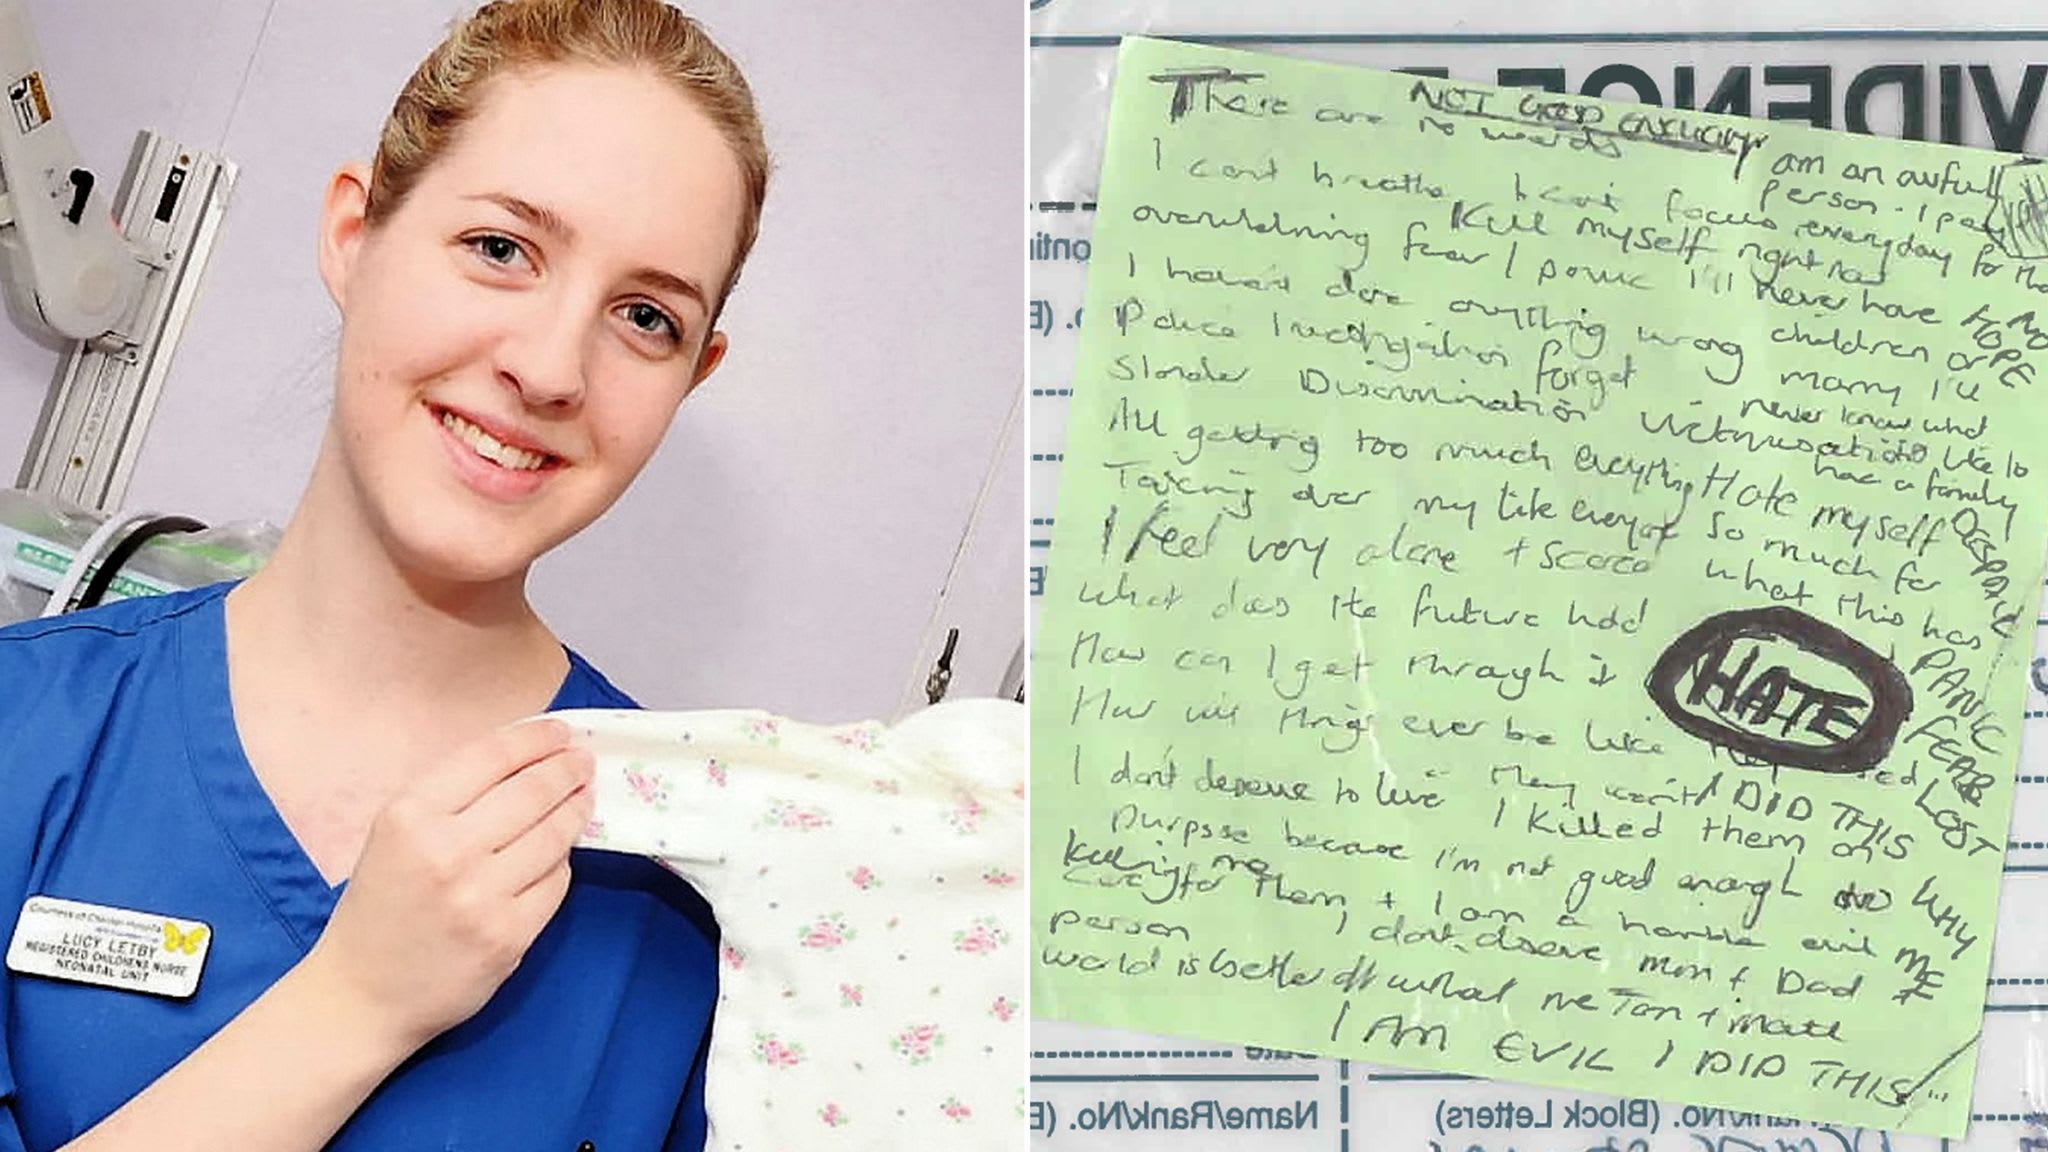 Countess of Chester Hospital
LUCY LETBY
REGISTERED CHILDRENS NURSE
NEONATAL UNIT
VIDENCE
NOT GOOD ENOUGH
There are no words
am an awful
person - I pay
I can't breathe I can't focus
everyday for that
Kill myself right now
overwhelming fear / panic
I'll never have
NO
HOPE
I haven't done anything wrong
children or
marry I'll
never know what
its like to
have a family
Police investigation forget
Slander Discrimination Victimisation
All getting too much everything
Hate myself
so much for
what this has
DESPAIR
Taking over my life everyone
I feel very alone + scared
What does the future hold
PANIC
HATE
FEAR
How can I get through it
LOST
How will things ever be like
I don't deserve to live
They won't
I DID THIS
I killed them on
purpose because I'm not good enough
WHY
ME
Killing me
care for them + I am a horrible evil
person
I don't deserve Mum + Dad
world is better off without me Tom + Matt
I AM EVIL I DID THIS
Date
Name/Rank/No.
Rank/No. (Block Letters)